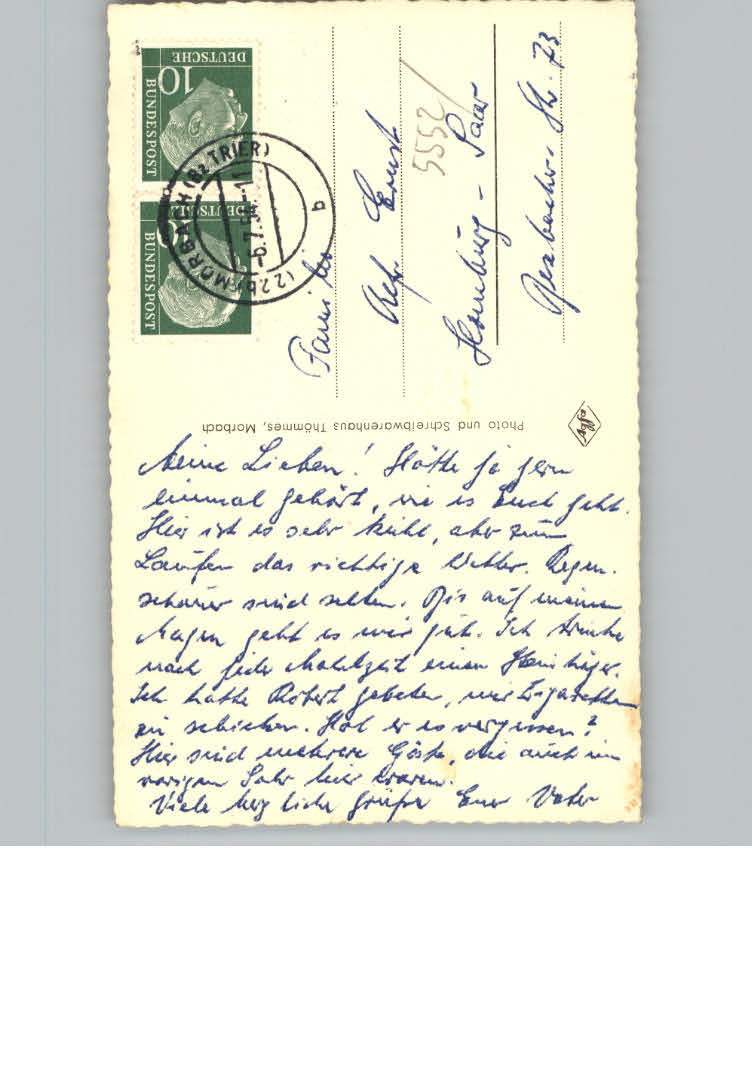 Meine Lieben! Hätte ja gern
einmal gehört, wie es Euch geht.
Hier ist es sehr kühl, aber zum
Laufen das richtige Wetter. Regen-
schauer sind selten. Bis auf meinen
Magen geht es mir gut. Ich trinke
nach jeder Mahlzeit einen Steinhäger.
Ich hatte Robert gebeten, mir Zigaretten
zu schicken. Hat er es vergessen?
Hier sind mehrere Gäste, die auch im
vorigen Jahr hier waren.
Viele herzliche Grüße Euer Vater
Photo und Schreibwarenhaus Thömmes, Morbach
Familie
Ernst
Homburg - Saar
Str. 73
5552/
DEUTSCHE
BUNDESPOST
10
DEUTSCHE
BUNDESPOST
(22b) MORBACH (BZ TRIER)
b